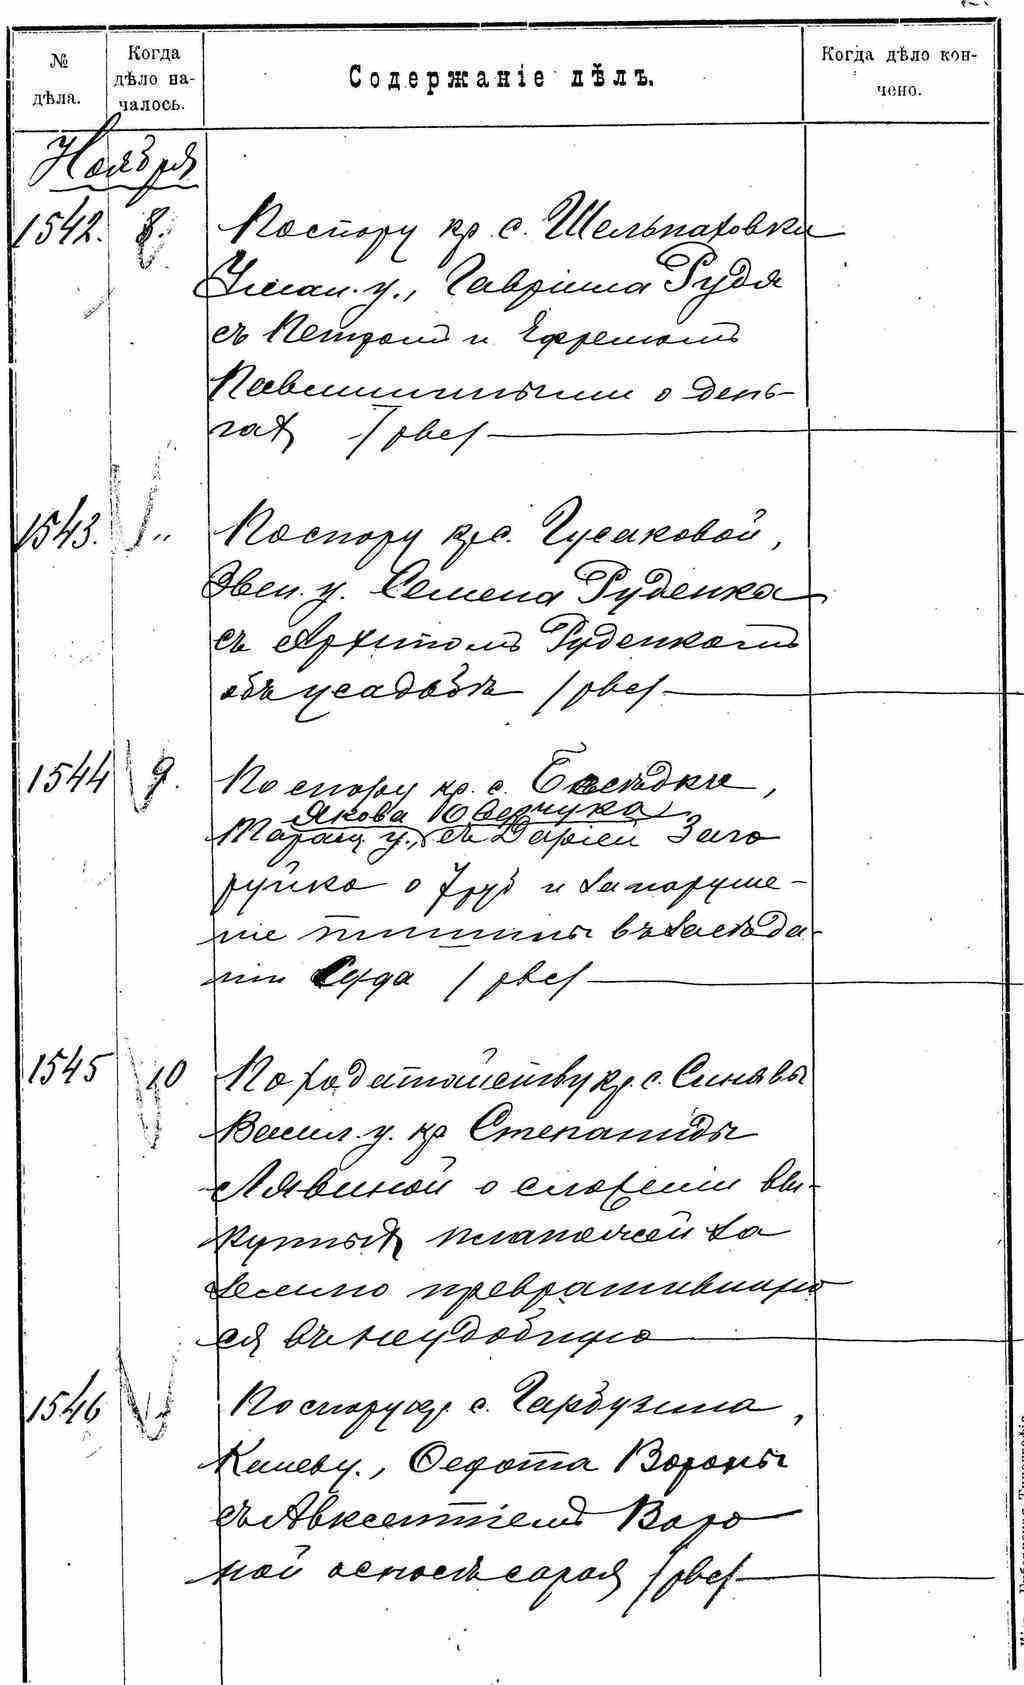 № дѣла.
Когда дѣло на-
чалось.
Содержаніе дѣлъ.
Когда дѣло кон-
чено.
Ноября
1542. 8. По спору кр. с. Шельпаховки
Уман. у., Гавріила Рудя
съ Петромъ и Ефремомъ
о день-
гахъ
1543. „ По спору кр. с. Гусаковой,
Звен. у. Семена Руденка
съ Архипомъ Руденкомъ
объ усадьбѣ
1544 9. По спору кр. с. Бесѣдки,
Якова
Таращ. у., съ Дарьей Заго
руйко о 7 руб и за наруше-
ніе тишины въ засѣда-
ніи Суда
1545 10 По ходатайству кр. с. Синявы
Васил. у. кр Степаниды
Лявиной о сложеніи вы-
купныхъ платежей за
землю превратившую
ся въ неудобную
1546 „ По спору кр. с. Гарбузина,
Канев у., Федота Вороны
съ Авксентіемъ Воро
ной о сносѣ сарая